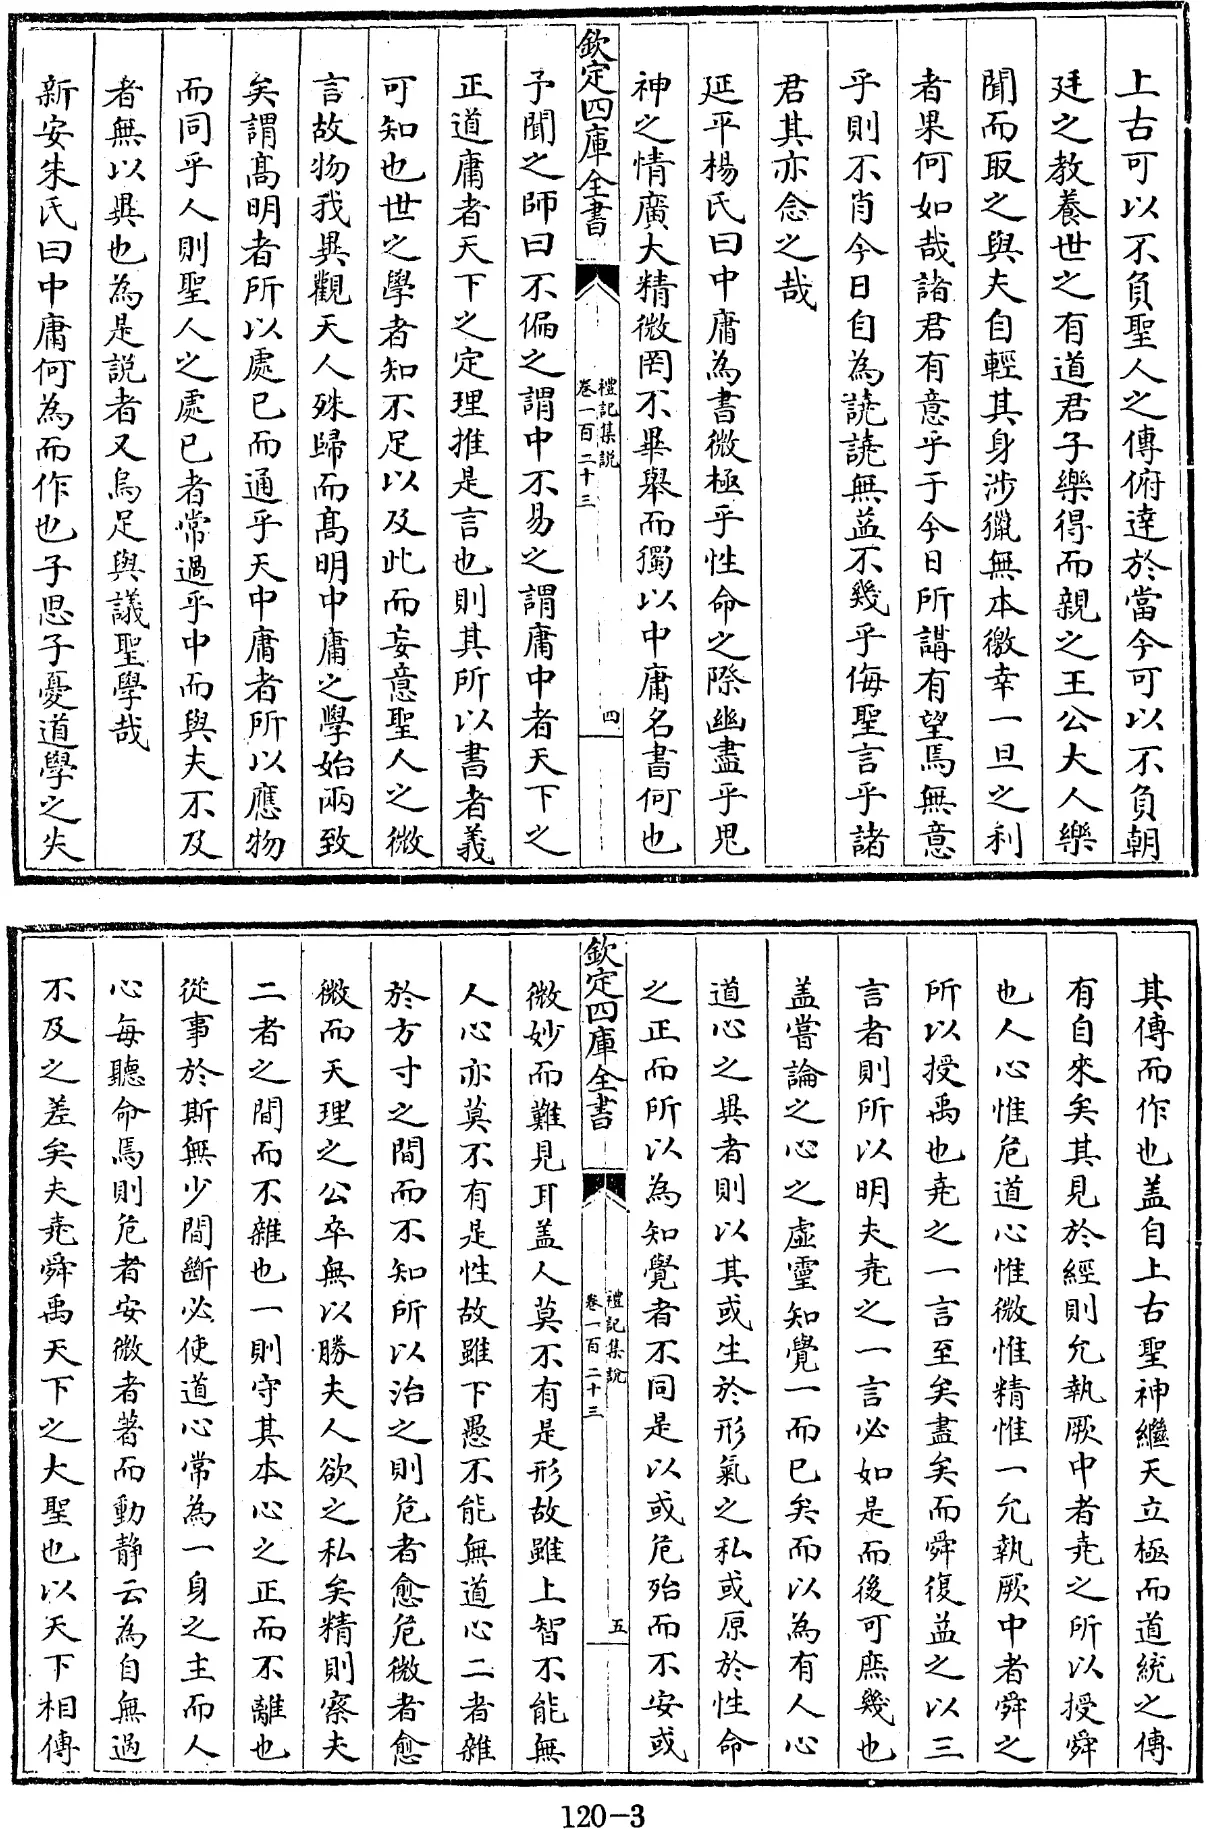 上古可以不負聖人之傳俯達於當今可以不負朝
廷之教養世之有道君子樂得而親之王公大人樂
聞而取之與夫自輕其身涉獵無本徼幸一旦之利
者果何如哉諸君有意乎于今日所講有望焉無意
乎則不肖今日自為譊譊無益不幾乎侮聖言乎諸
君其亦念之哉
延平楊氏曰中庸為書微極乎性命之際幽盡乎鬼
神之情廣大精微罔不畢舉而獨以中庸名書何也
欽定四庫全書
禮記集說
卷一百二十三
四
予聞之師曰不偏之謂中不易之謂庸中者天下之
正道庸者天下之定理推是言也則其所以書者義
可知也世之學者知不足以及此而妄意聖人之微
言故物我異觀天人殊歸而高明中庸之學始兩致
矣謂高明者所以處已而通乎天中庸者所以應物
而同乎人則聖人之處已者常過乎中而與夫不及
者無以異也為是說者又烏足與議聖學哉
新安朱氏曰中庸何為而作也子思子憂道學之失
其傳而作也盖自上古聖神繼天立極而道統之傳
有自來矣其見於經則允執厥中者堯之所以授舜
也人心惟危道心惟微惟精惟一允執厥中者舜之
所以授禹也堯之一言至矣盡矣而舜復益之以三
言者則所以明夫堯之一言必如是而後可庶幾也
盖嘗論之心之虛靈知覺一而已矣而以為有人心
道心之異者則以其或生於形氣之私或原於性命
之正而所以為知覺者不同是以或危殆而不安或
欽定四庫全書
禮記集說
卷一百二十三
五
微妙而難見耳盖人莫不有是形故雖上智不能無
人心亦莫不有是性故雖下愚不能無道心二者雜
於方寸之間而不知所以治之則危者愈危微者愈
微而天理之公卒無以勝夫人欲之私矣精則察夫
二者之間而不雜也一則守其本心之正而不離也
從事於斯無少間斷必使道心常為一身之主而人
心每聽命焉則危者安微者著而動靜云為自無過
不及之差矣夫堯舜禹天下之大聖也以天下相傳
120-3